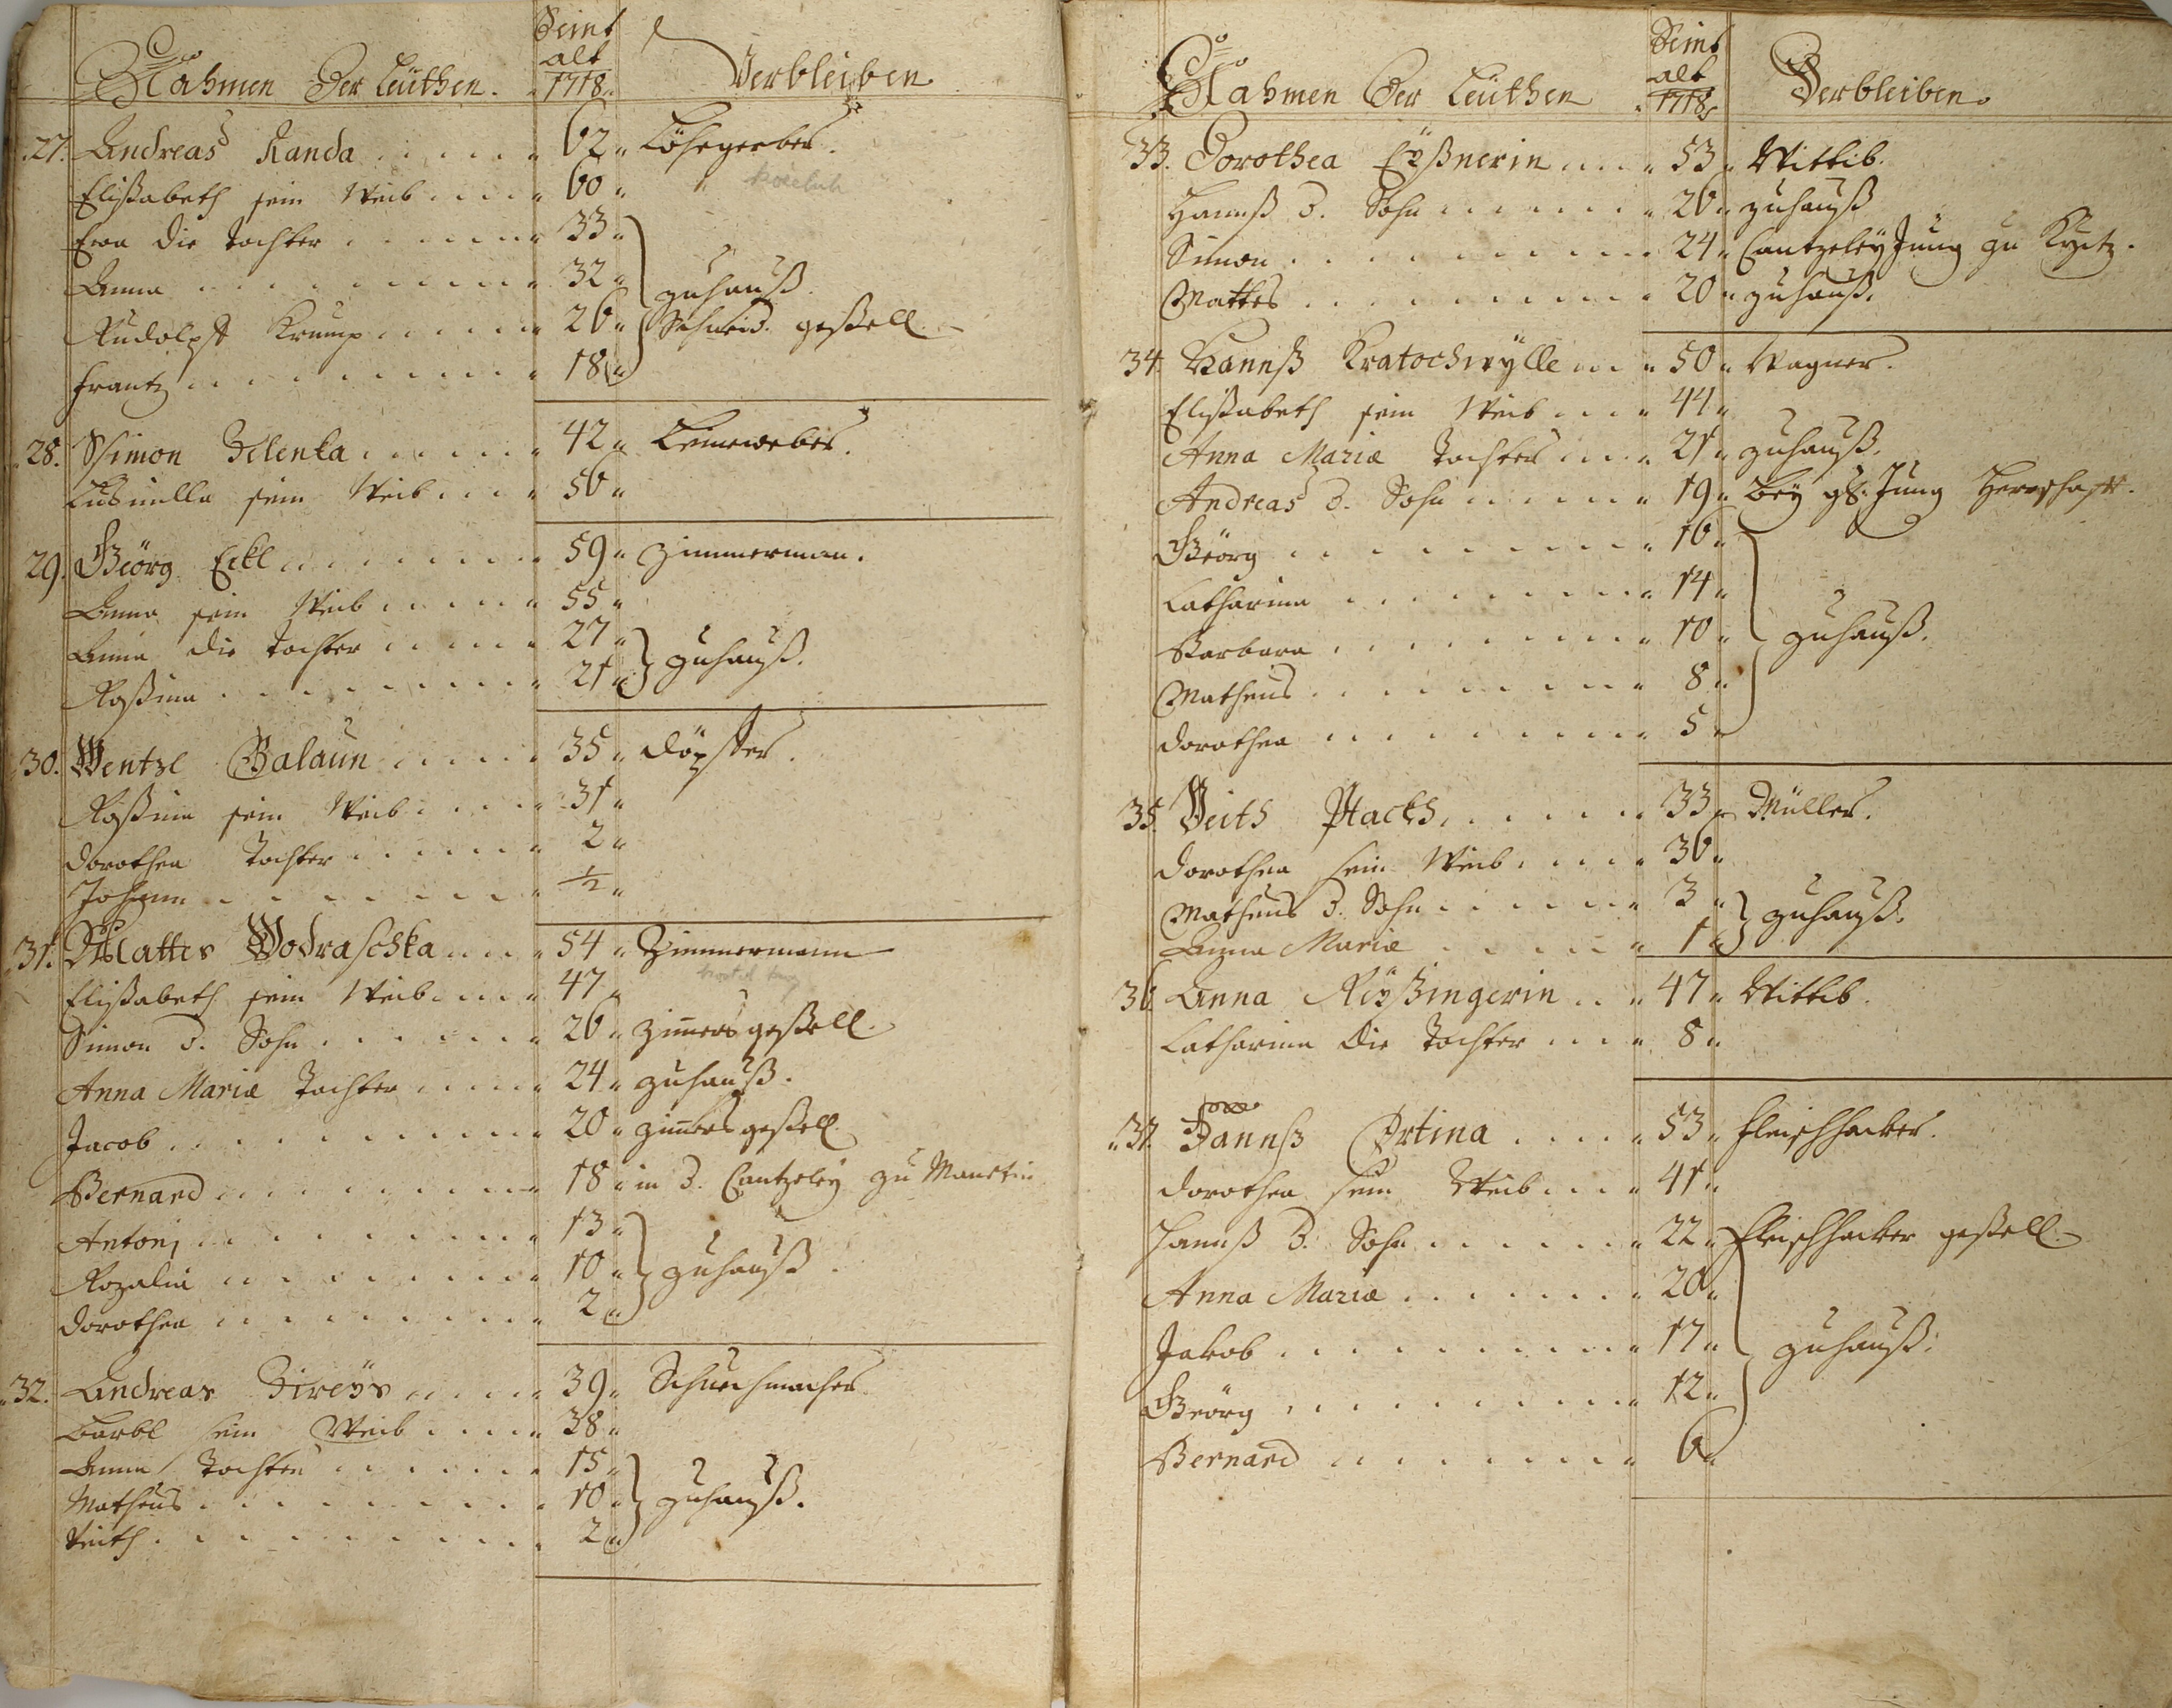 Nahmen Der Leüthen. Seint alt 1718 Verbleiben
27. Andreas Randa 62 Löhrgerber.
Elißabeth sein Weib 60
Ewa die Tochter 33
Anna 32 zuhauß.
Rudolph Krump 26 Schneid. geßell.
Frantz 18
28. Simon Zelenka 42 Leineweber.
Ludmilla sein Weib 56
29. Geörg Eckl 59 Zimmerman.
Anna sein Weib 55
Anna die Tochter 27 zuhauß.
Roßina 21
30. Wentzl Balaun 35 Döpffer.
Roßina sein Weib 31
Dorothea Tochter 2
Johann 1/2
31. Mattes Wodraschka 54 Zimmermann
Elißabeth sein Weib 47
Simon d. Sohn 26 Zimmer geßell.
Anna Maria Tochter 24 zuhauß.
Jacob 20 Zimmer geßell
Bernard 18 in d. Cantzeley zu Manetin
Antonj 13
Rozalia 10 zuhauß.
Dorothea 2
32. Andreas Direÿs 39 Schuechmacher
Barbl sein Weib 38
Anna Tochter 15
Matheus 10 zuhauß.
Veith 2
Nahmen Der Leüthen Seint alt 1718 Verbleiben.
33. Dorothea Eÿßnerin 53 Wittib.
Hannß d. Sohn 26 zuhauß
Simon 24 Cantzeleÿ Jung zu
Mattes 20 zuhauß.
34. Hannß Kratochwÿlle 50 Wagner.
Elißabeth sein Weib 44
Anna Maria Tochter 21 zuhauß.
Andreas d. Sohn 19 Beÿ gd. Jung Herrschafft.
Geörg 16
Catharina 14
Barbara 10 zuhauß.
Matheus 8
Dorothea 5
35. Veith Ptack 33 Müller.
Dorothea sein Weib 30
Matheus d. Sohn 3 zuhauß.
Anna Maria 1
36. Anna Reÿßingerin 47 Wittib.
Catharina die Tochter 8
37. Hannß Ortina 53 Fleischhacker.
Dorothea sein Weib 41
Hannß d. Sohn 22 Fleischhacker geßell.
Anna Maria 20
Jakob 17 zuhauß.
Geörg 12
Bernard 6